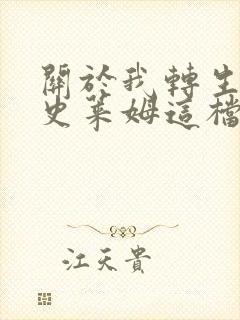 關於我轉生
史萊姆這檔
江天貴